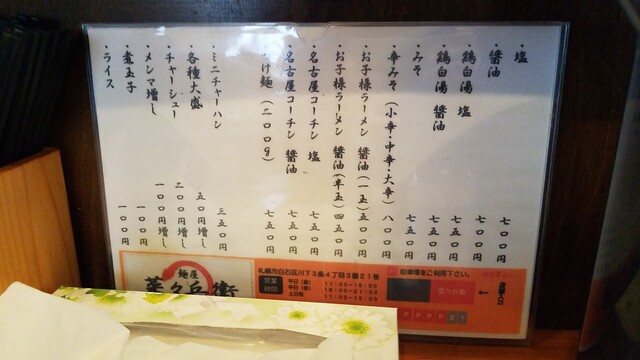 ・塩 七〇〇円
・醬油 七〇〇円
・鶏白湯 塩 七五〇円
・鶏白湯 醬油 七五〇円
・みそ 七五〇円
・辛みそ(小辛・中辛・大辛) 八〇〇円
・お子様ラーメン 醬油(一玉) 五〇〇円
・お子様ラーメン 醬油(半玉) 四五〇円
・名古屋コーチン 塩 七五〇円
・名古屋コーチン 醬油 七五〇円
つけ麺(二〇〇g) 七五〇円
・ミニチャーハン 三五〇円
・各種大盛 五〇円増し
・チャーシュー 二〇〇円増し
・メンマ増し 一〇〇円増し
・煮玉子 一〇〇円
・ライス 一〇〇円
麺屋
菜々兵衛
札幌市白石区川下3条4丁目3番21号
営業時間
駐車場をご利用下さい。